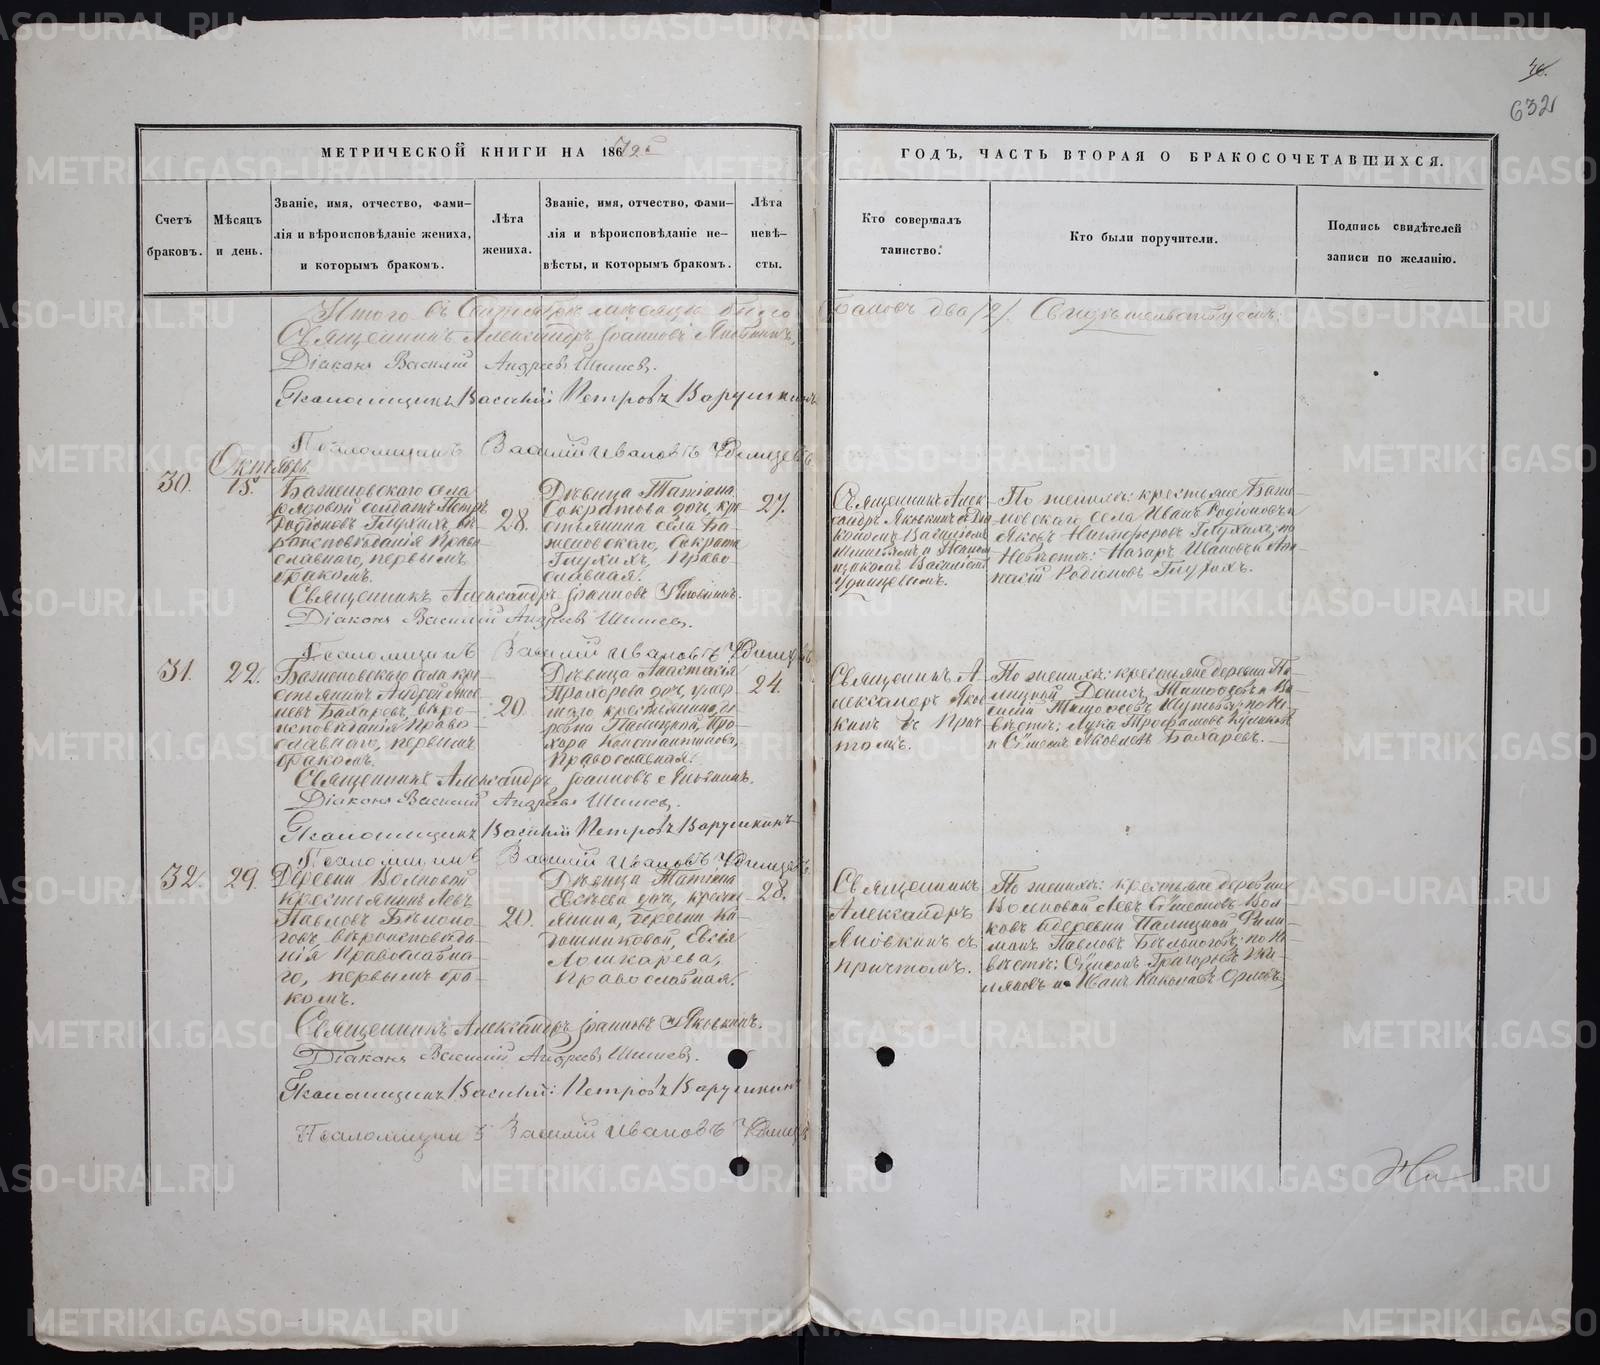 46.
632
МЕТРИЧЕСКОЙ КНИГИ НА 1872й
ГОДЪ, ЧАСТЬ ВТОРАЯ О БРАКОСОЧЕТАВШИХСЯ.
Счетъ браковъ.
Мѣсяцъ и день.
Званіе, имя, отчество, фами-
лія и вѣроисповѣданіе жениха,
и которымъ бракомъ.
Лѣта жениха.
Званіе, имя, отчество, фами-
лія и вѣроисповѣданіе не-
вѣсты, и которымъ бракомъ.
Лѣта невѣ-
сты.
Кто совершалъ
таинство.
Кто были поручители.
Подпись свидѣтелей
записи по желанію.
Итого въ Сентябрѣ мѣсяцѣ было
браковъ два /2/. Свидѣтельствуемъ:
Священникъ Александръ Іоанновъ Яковкинъ,
Діаконъ Василій Андреевъ Шишевъ.
Василій Петровъ Варушкинъ
Псаломщикъ Василій Ивановъ Удинцевъ
30.
Октябрь
15.
Баженовскаго села
рядовой солдатъ Петръ
Родіоновъ Глухихъ, вѣ-
роисповѣданія Право
славнаго, первымъ
бракомъ.
28.
Дѣвица Татіана
Сократова дочь, кре-
стьянина села Ба-
женовскаго, Сократа
Глухихъ, Право-
славная.
27.
Священникъ Алек-
сандръ Яковкинъ съ Діа
кономъ Василіемъ
Шишевымъ и Псалом
щикомъ Василіемъ
Удинцевымъ.
По женихѣ: крестьяне Баже-
новскаго села Иванъ Родіоновъ и
Яковъ Никифоровъ Глухихъ; по
Невѣстѣ: Назаръ Ивановъ и
Родіоновъ Глухихъ.
Священникъ Александръ Іоанновъ Яковкинъ.
Діаконъ Василій Андреевъ Шишевъ.
Псаломщикъ Василій Ивановъ Удинцевъ
31.
22.
Баженовскаго села кре-
стьянинъ Андрей Яков
левъ Бахаревъ, вѣро-
исповѣданія Право
славнаго, первымъ
бракомъ.
20.
Дѣвица Анастасія
Прохорова дочь, умер-
шаго крестьянина де
ревни Палицкой, Про-
хора Константинова,
Православная.
24.
Священникъ А-
лександръ Яков
кинъ съ Прич
томъ.
По женихѣ: крестьяне деревни Па-
лицкой, и Ва-
силій Шутовы; по Не-
вѣстѣ: Лука Трофимовъ Куликовъ
и Сѵмеонъ Яковлевъ Бахаревъ.
Священникъ Александръ Іоанновъ Яковкинъ.
Діаконъ Василій Андреевъ Шишевъ.
Василій Петровъ Варушкинъ
Псаломщикъ Василій Ивановъ Удинцевъ
32.
29.
Деревни Волковой
крестьянинъ Левъ
Павловъ Бѣлоно-
говъ, вѣроисповѣда-
нія Православна-
го, первымъ бра-
комъ.
20.
Дѣвица Татіана
Евсѣева дочь, кресть-
янина, деревни Ка-
лошниковой, Евсія
Лошкарева,
Православная.
28.
Священникъ
Александръ
Яковкинъ съ
Причтомъ.
По женихѣ: крестьяне деревни
Волковой Левъ Сѵмеоновъ Вол-
ковъ и деревни Палицкой Фили-
монъ Павловъ Бѣлоноговъ; по Не-
вѣстѣ: Сѵмеонъ Григорьевъ
и Иванъ Орловъ.
Священникъ Александръ Іоанновъ Яковкинъ.
Діаконъ Василій Андреевъ Шишевъ.
Василій Петровъ Варушкинъ
Псаломщикъ Василій Ивановъ Удинцевъ
METRIKI.GASO-URAL.RU